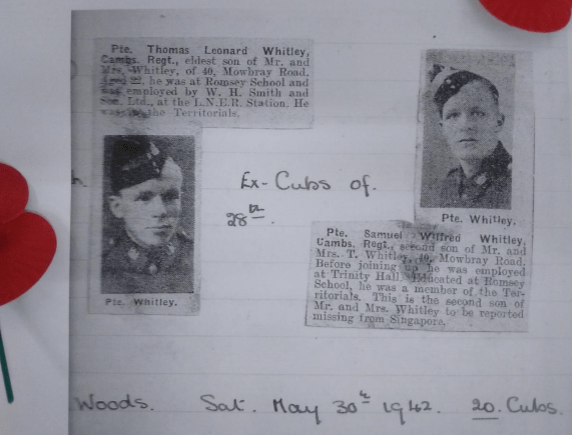 Pte. Thomas Leonard Whitley,
Cambs. Regt., eldest son of Mr. and
Mrs. Whitley, of 40, Mowbray Road.
he was at Romsey School and
was employed by W. H. Smith and
Son, Ltd., at the L.N.E.R. Station. He
was in the Territorials.
Pte. Whitley.
Ex-Cubs of.
28th.
Pte. Whitley.
Pte. Samuel Wilfred Whitley,
Cambs. Regt., second son of Mr. and
Mrs. T. Whitley, 40, Mowbray Road.
Before joining up he was employed
at Trinity Hall. Educated at Romsey
School, he was a member of the Ter-
ritorials. This is the second son of
Mr. and Mrs. Whitley to be reported
missing from Singapore.
Woods. Sat. May 30th 1942. 20. Cubs.